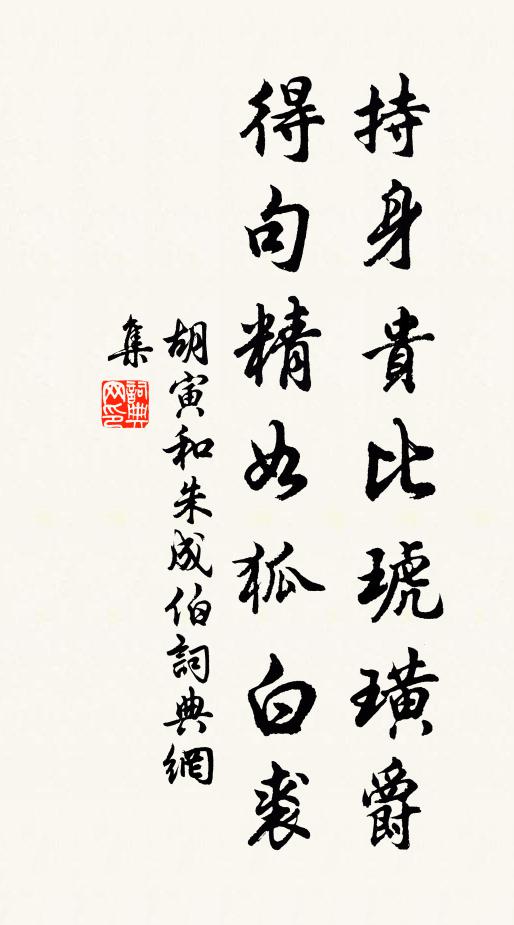 持身貴比琥璜爵
得句精如狐白裘
胡寅和朱成伯詞典網
集
詞典
网印